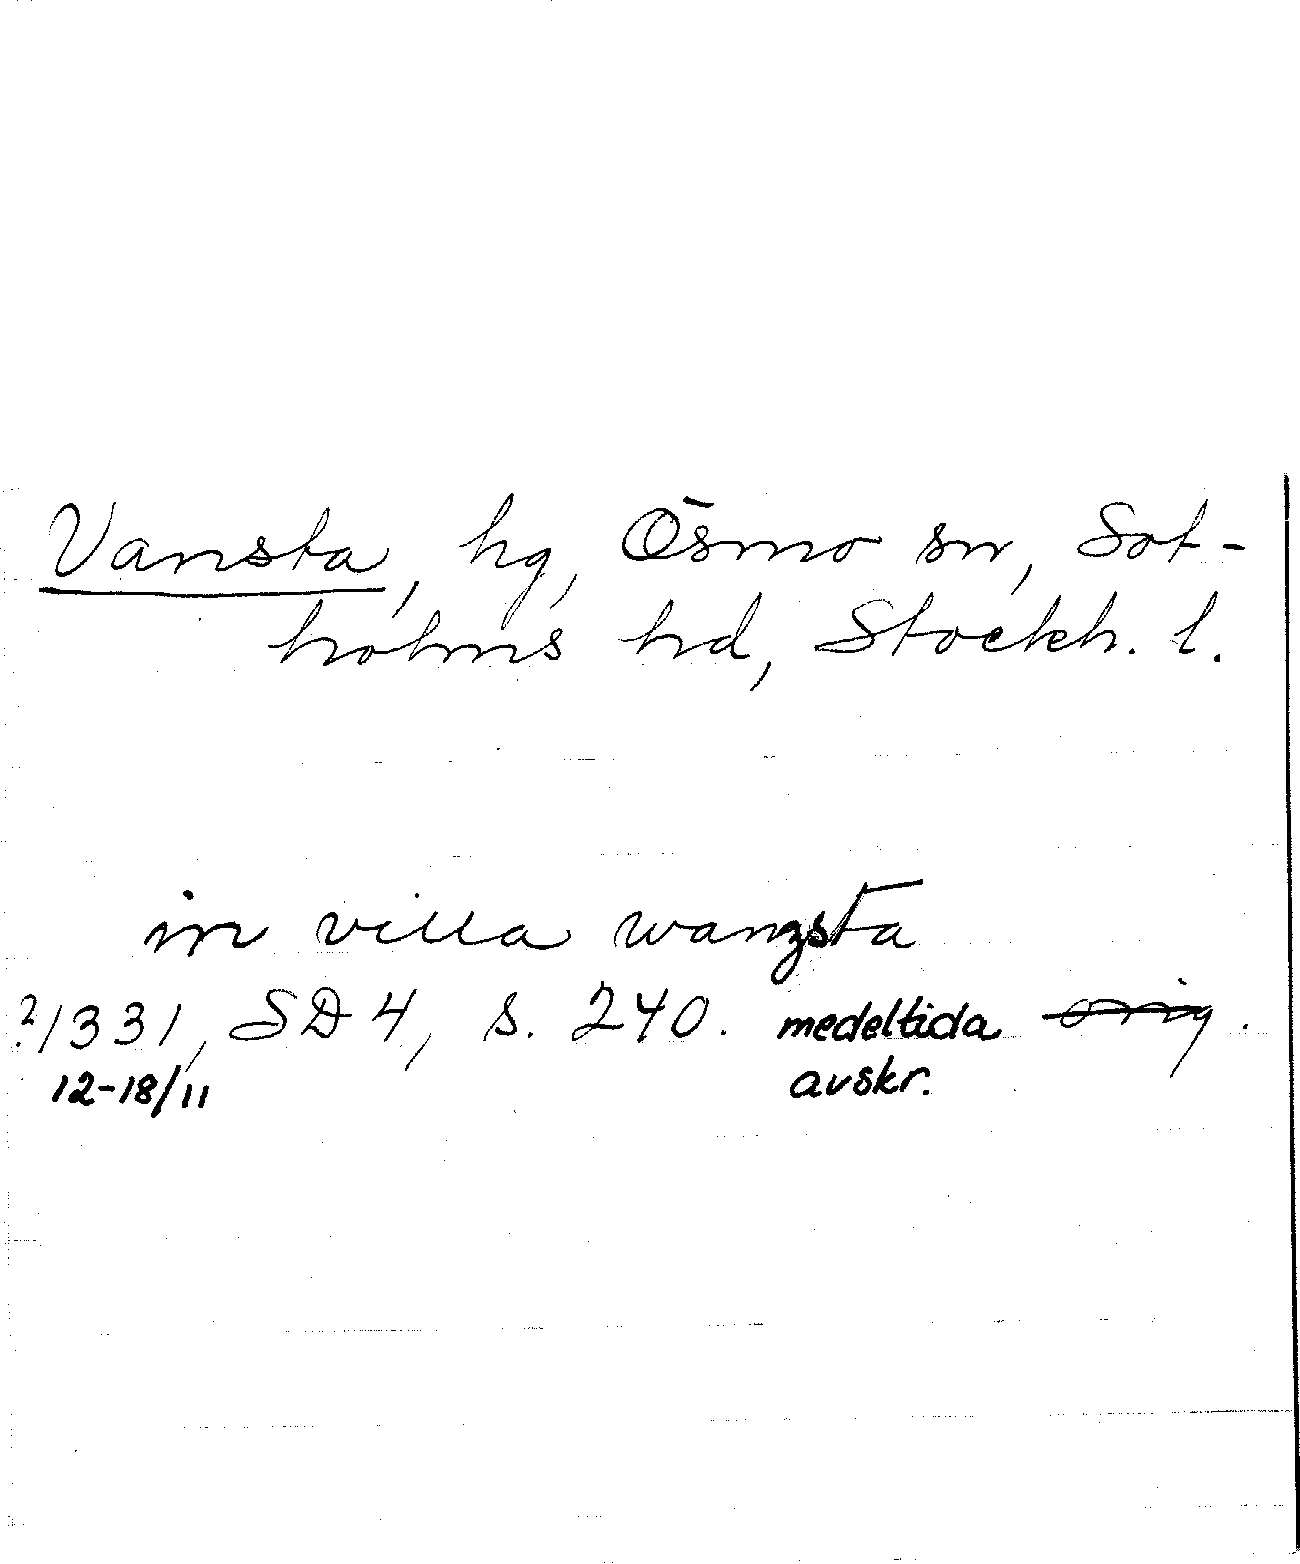 Vansta, hg, Ösmo sn, Sot-
holms hd, Stockh. l.
in villa wanzsta
?1331, SD 4, s. 240. medeltida orig.
12-18/11 avskr.